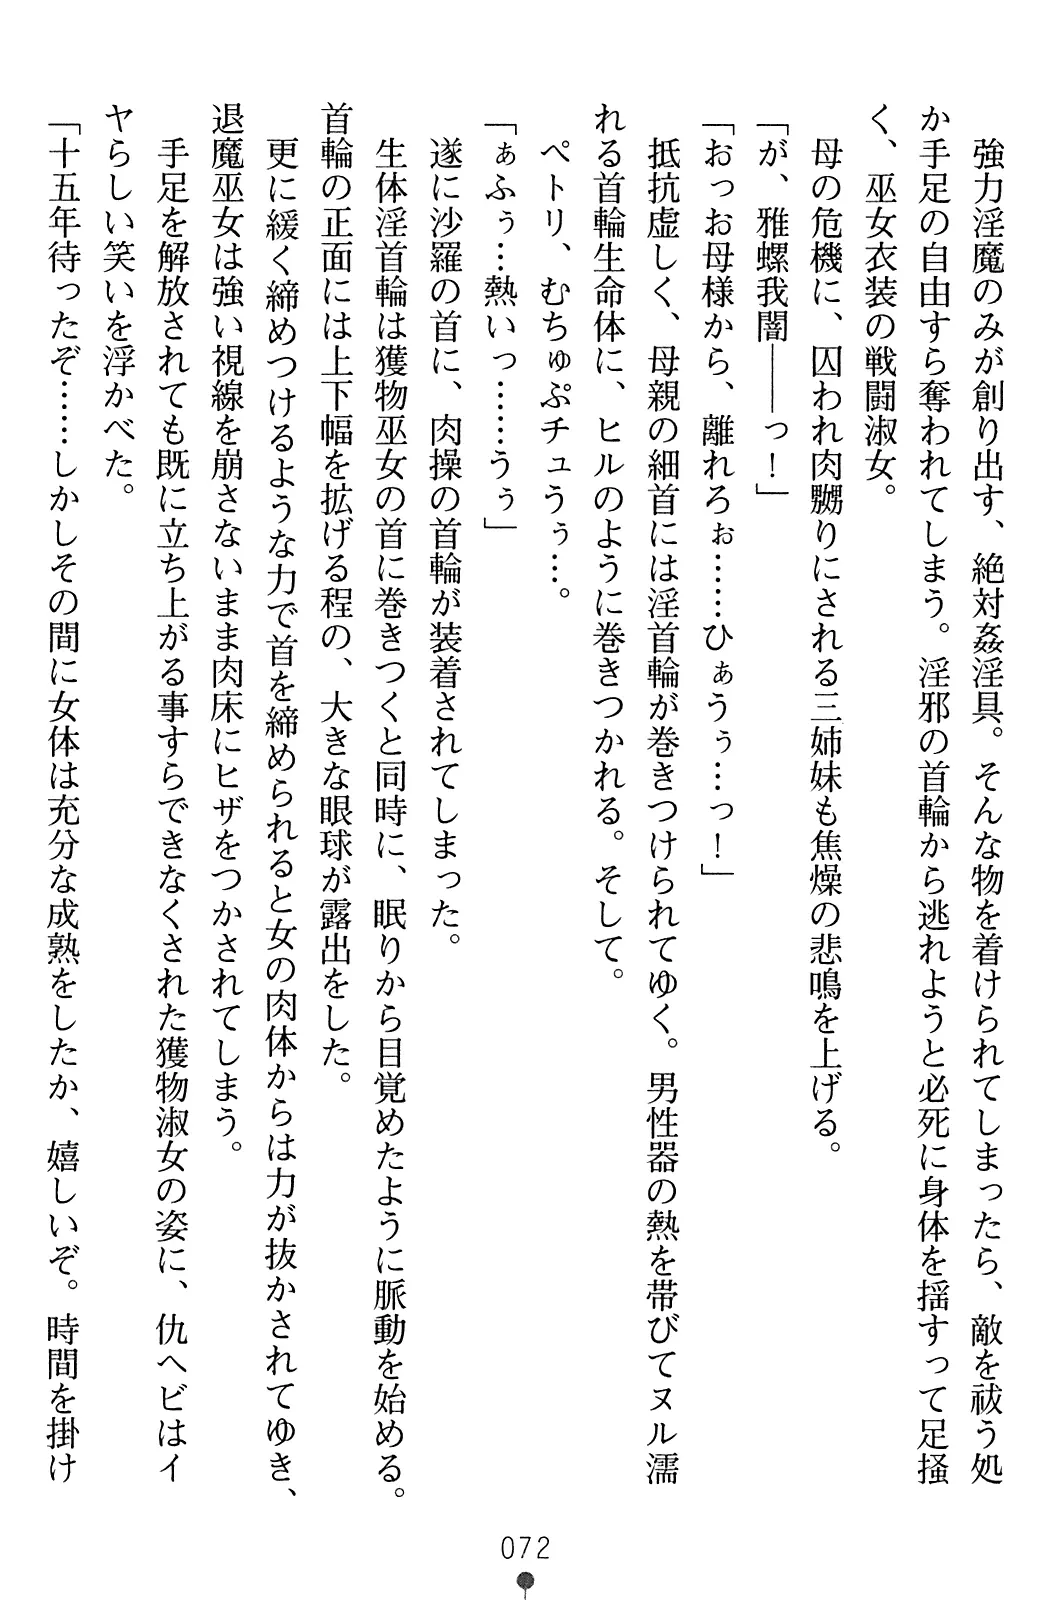 強力淫魔のみが創り出す、絶対姦淫具。そんな物を着けられてしまったら、敵を祓う処
か手足の自由すら奪われてしまう。淫邪の首輪から逃れようと必死に身体を揺すって足掻
く、巫女衣装の戦闘淑女。
　母の危機に、囚われ肉嬲りにされる三姉妹も焦燥の悲鳴を上げる。
「が、雅螺我闇――っ！」
「おっお母様から、離れろぉ……ひぁうぅ…っ！」
　抵抗虚しく、母親の細首には淫首輪が巻きつけられてゆく。男性器の熱を帯びてヌル濡
れる首輪生命体に、ヒルのように巻きつかれる。そして。
　ペトリ、むちゅぷチュうぅ…。
「ぁふぅ…熱いっ……うぅ」
　遂に沙羅の首に、肉操の首輪が装着されてしまった。
　生体淫首輪は獲物巫女の首に巻きつくと同時に、眠りから目覚めたように脈動を始める。
首輪の正面には上下幅を拡げる程の、大きな眼球が露出をした。
　更に緩く締めつけるような力で首を締められると女の肉体からは力が抜かされてゆき、
退魔巫女は強い視線を崩さないまま肉床にヒザをつかされてしまう。
　手足を解放されても既に立ち上がる事すらできなくされた獲物淑女の姿に、仇ヘビはイ
ヤらしい笑いを浮かべた。
「十五年待ったぞ……しかしその間に女体は充分な成熟をしたか、嬉しいぞ。時間を掛け
072